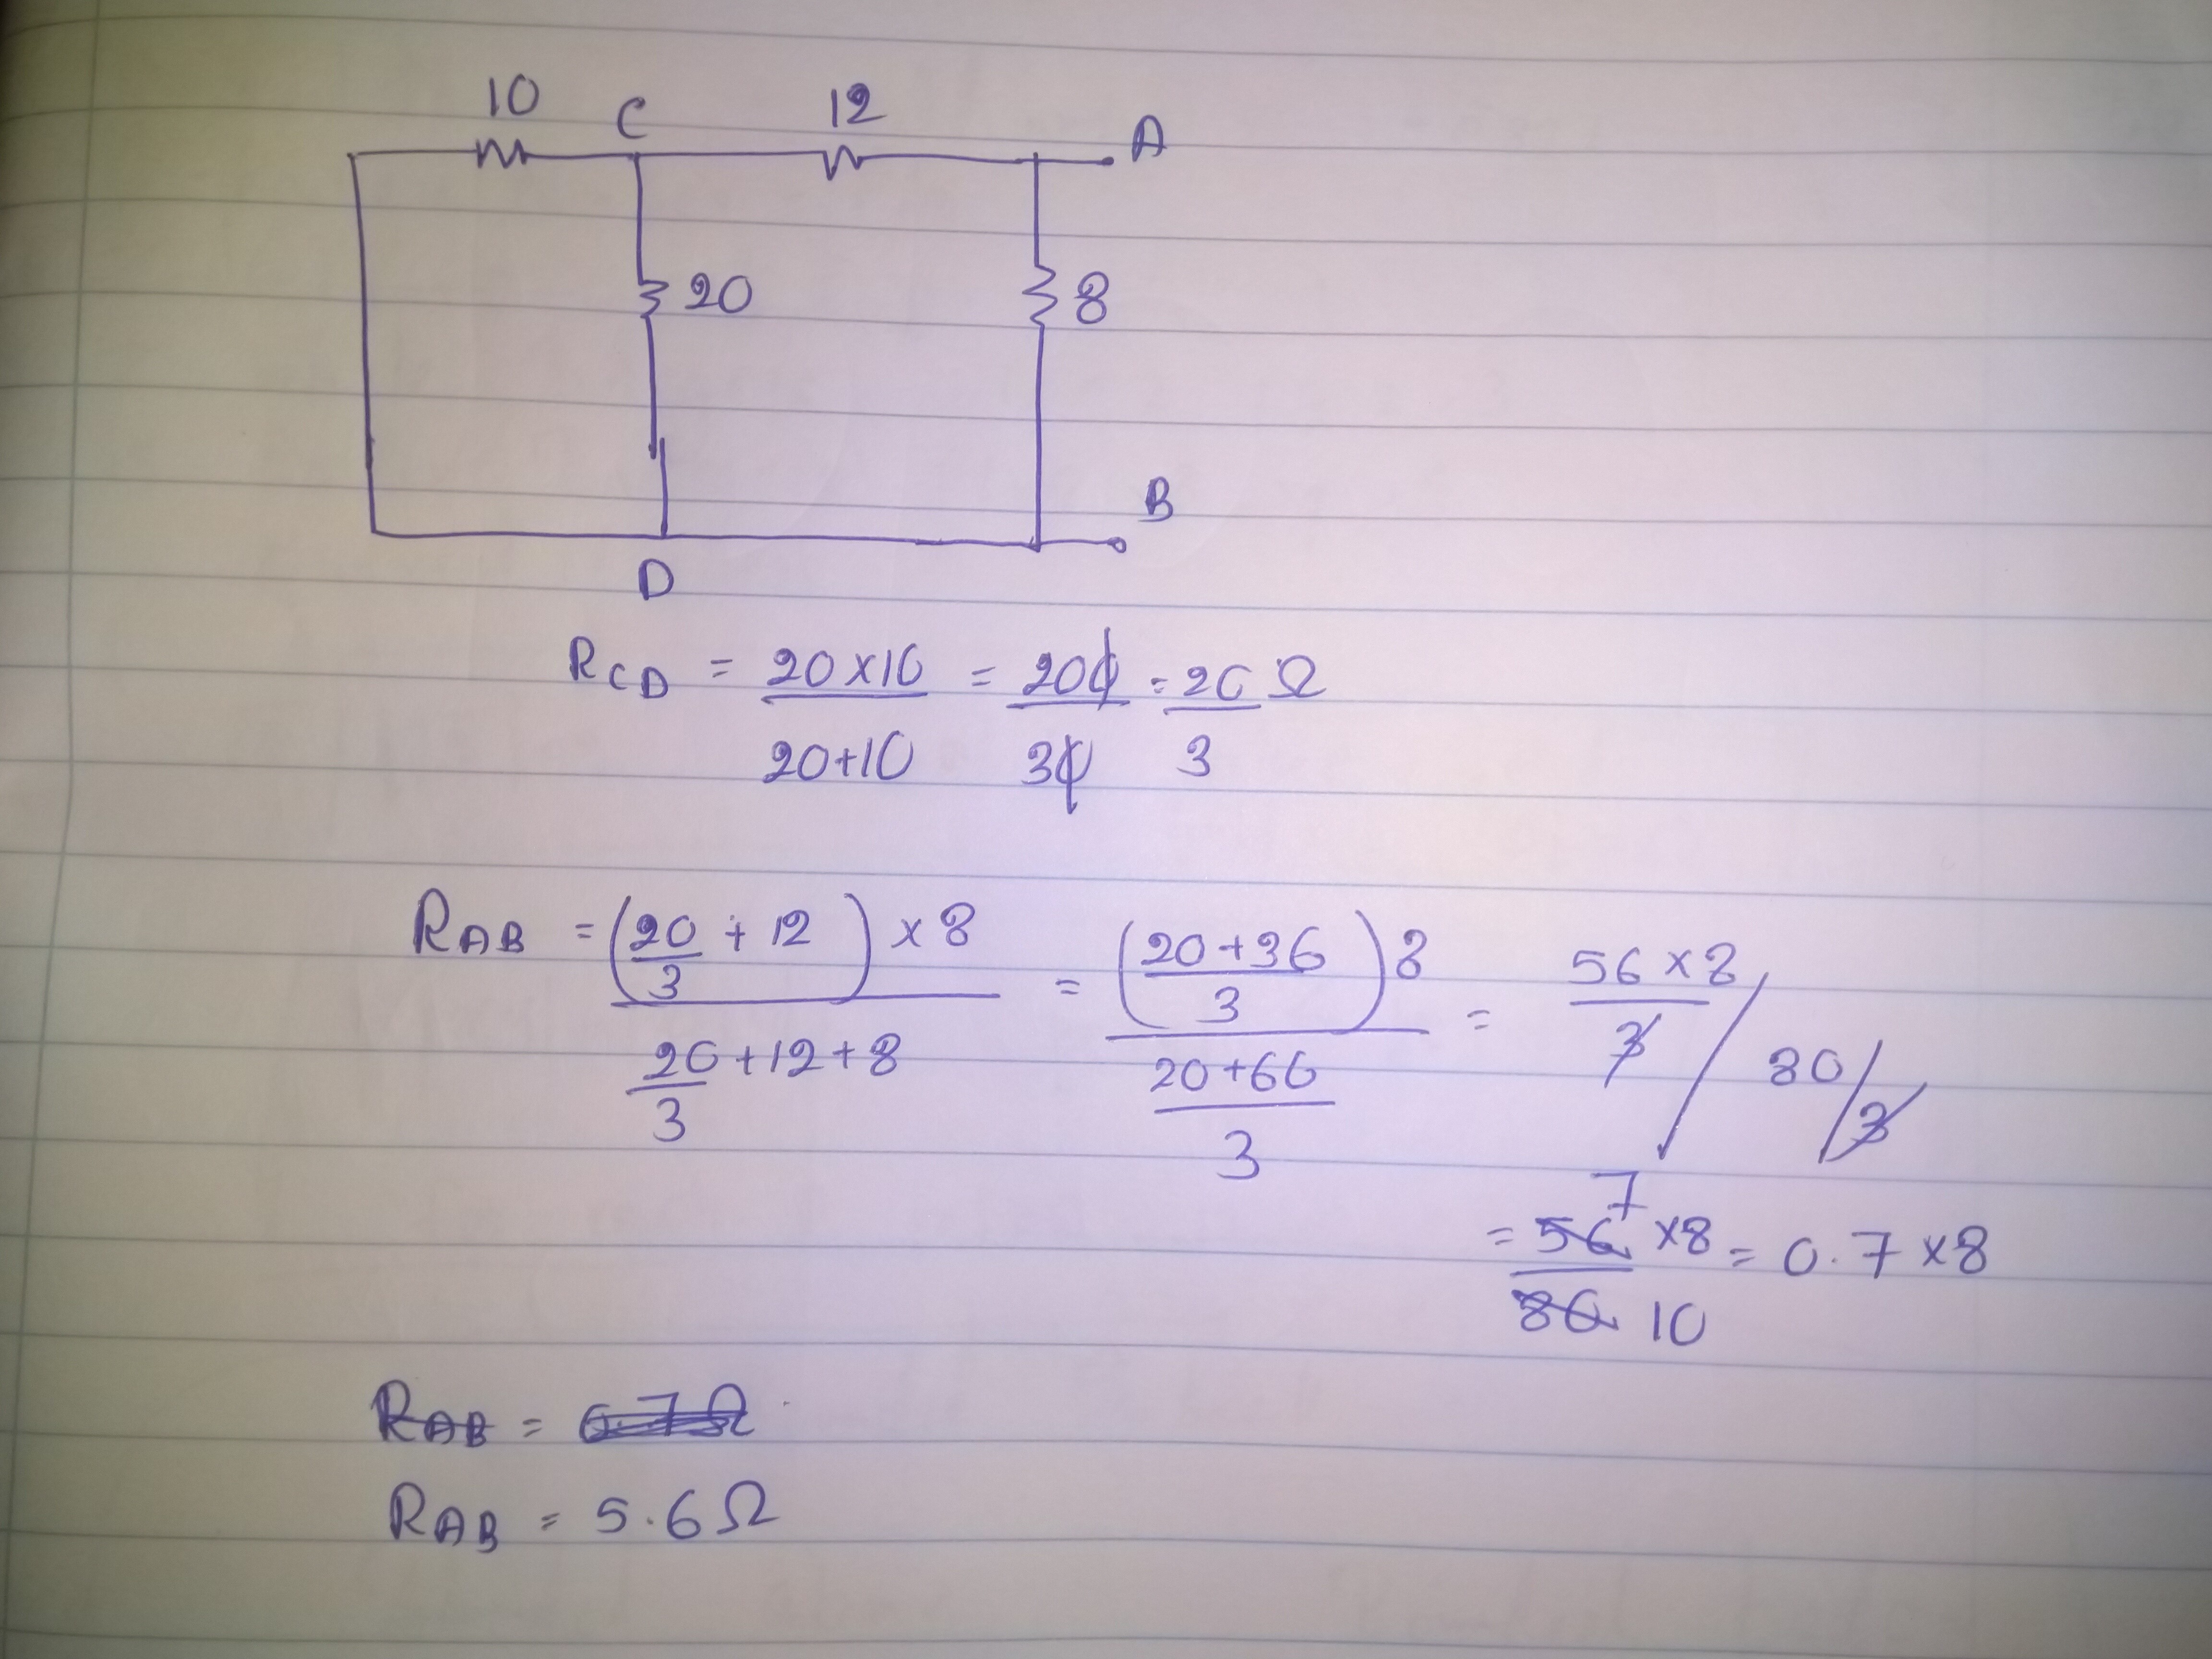 10 C 12 A
20 8
B
D
R_CD = 20×10 / 20+10 = 200 / 30 = 20 / 3 Ω
R_AB = (20/3 + 12) × 8 / 20/3 + 12 + 8 = (20+36 / 3) 8 / 20+60 / 3 = 56 × 8 / 3 / 80/3
= 56 7 × 8 / 80 10 = 0.7 × 8
R_AB = 0.7Ω
R_AB = 5.6Ω